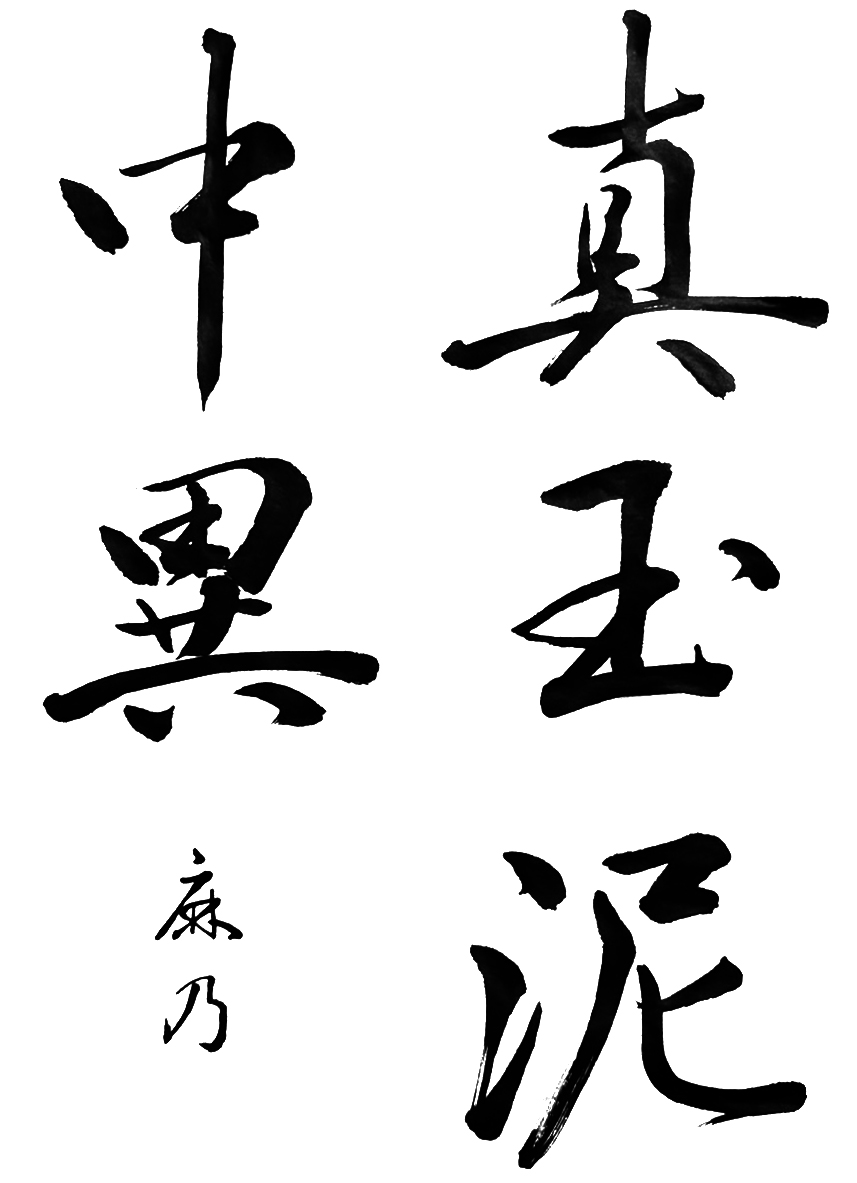 真玉泥
中異
麻乃